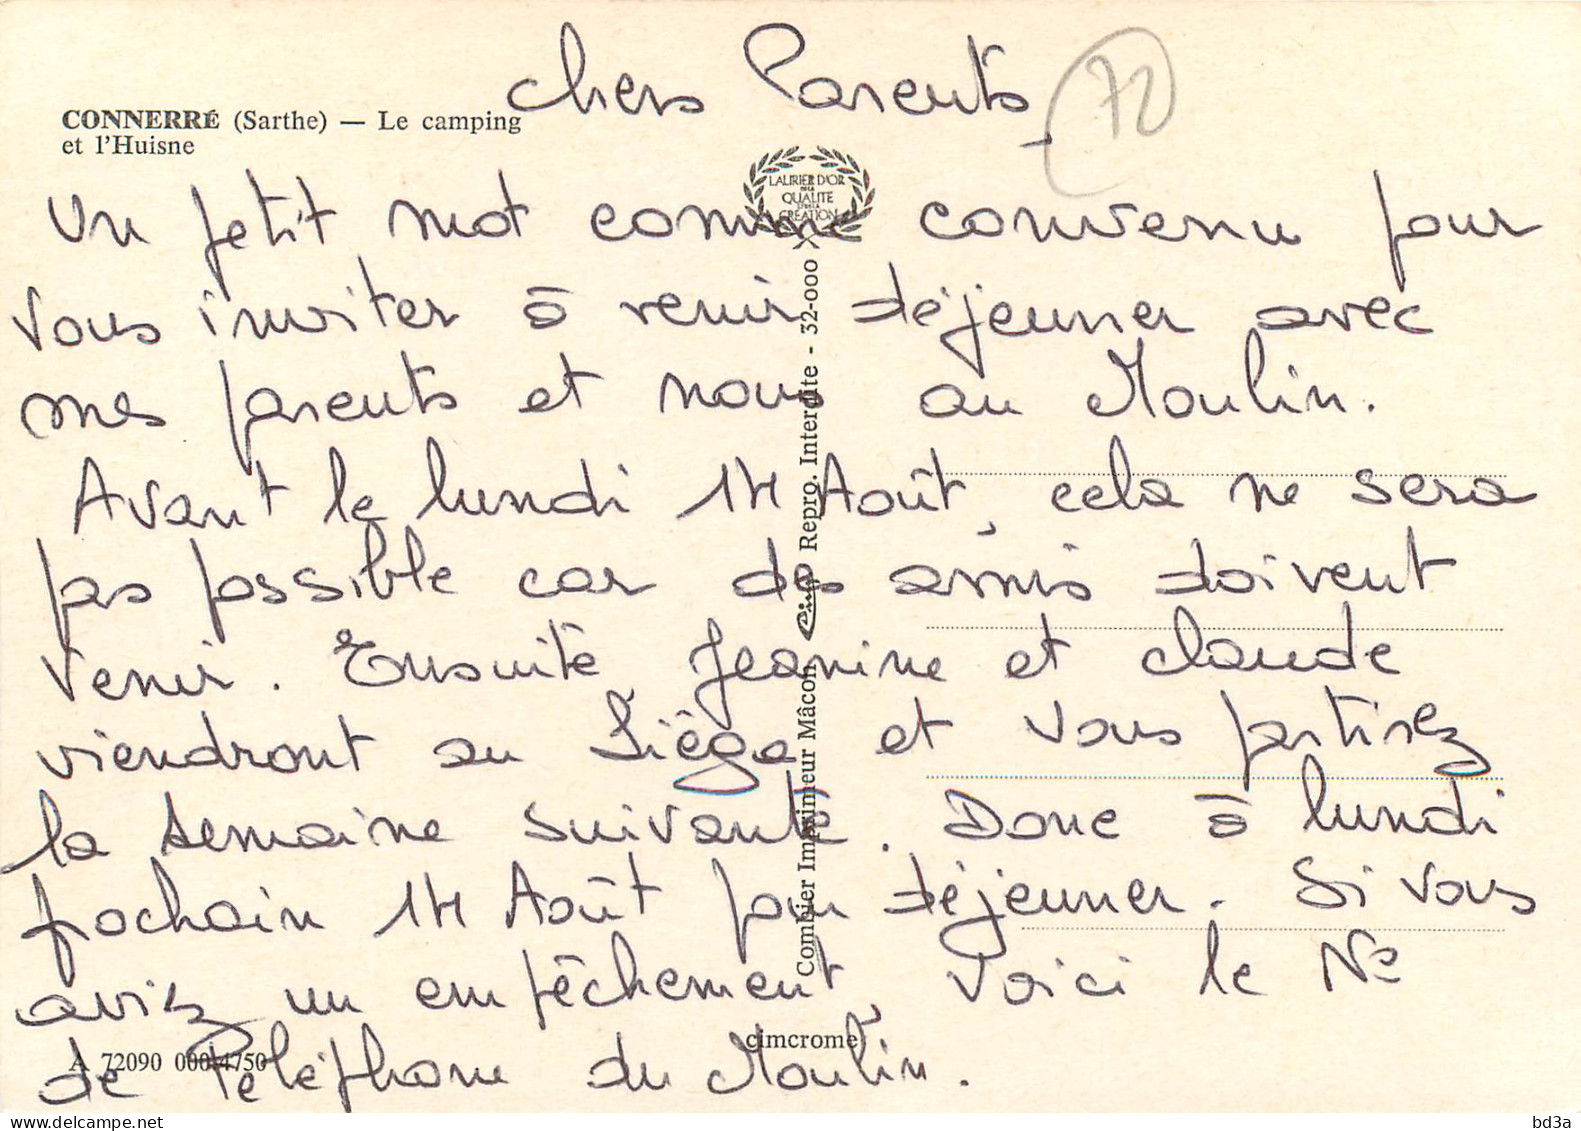 Chers Parents,
72
CONNERRÉ (Sarthe) — Le camping
et l'Huisne
LAURIER D'OR
DE LA
QUALITE
ET DE LA
CREATION
Un petit mot comme convenu pour
vous inviter à venir déjeuner avec
mes parents et nous au Moulin.
Avant le lundi 14 Août, cela ne sera
pas possible car des amis doivent
venir. Ensuite Jeanine et Claude
viendront au Liège et vous partirez
la semaine suivante. Donc à lundi
prochain 14 Août pour déjeuner. Si vous
aviez un empêchement, voici le No
de Téléphone du Moulin.
Combier Imprimeur Mâcon Cim Repro. Interdite - 32-000
A 72090 000 4750
cimcrome
delcampe.net
bd3a